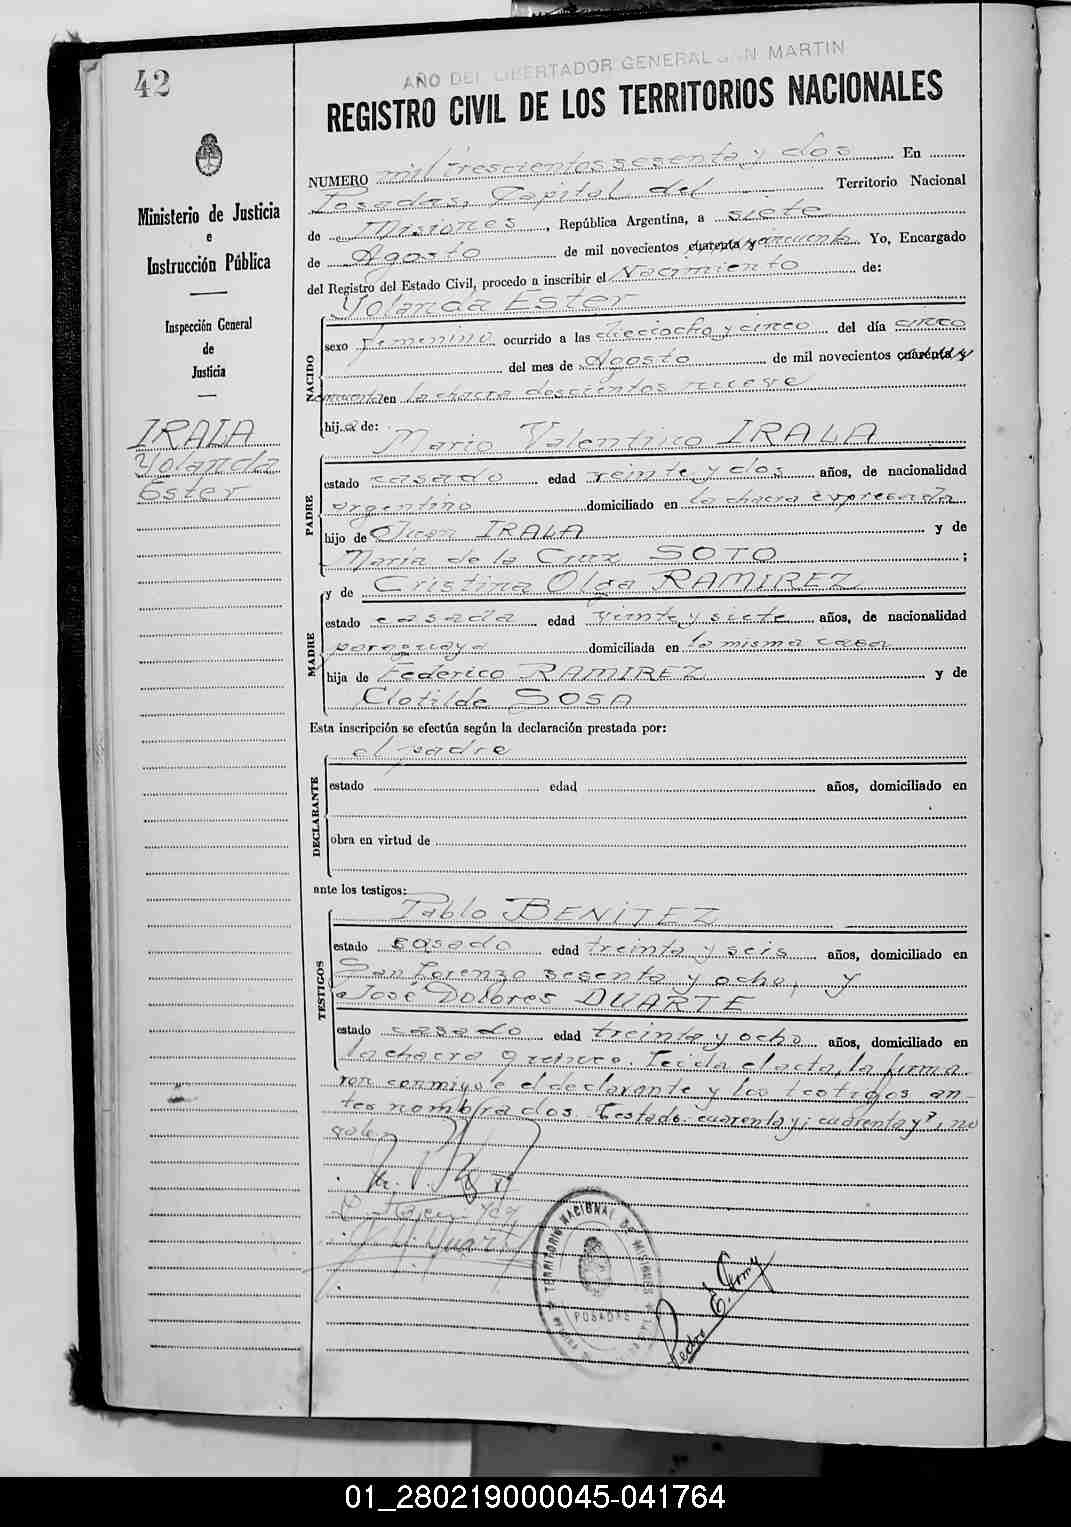 42
AÑO DEL LIBERTADOR GENERAL SAN MARTIN
REGISTRO CIVIL DE LOS TERRITORIOS NACIONALES
Ministerio de Justicia
e
Instrucción Pública
Inspección General
de
Justicia
IRALA
Yolanda
Ester
NUMERO mil trescientos sesenta y dos En
Posadas, Capital del Territorio Nacional
de Misiones, República Argentina, a siete
de Agosto de mil novecientos cuarenta y cincuenta Yo, Encargado
del Registro del Estado Civil, procedo a inscribir el Nacimiento de:
NACIDO
Yolanda Ester
sexo femenino ocurrido a las dieciocho y cinco del día cinco
del mes de Agosto de mil novecientos cuarenta y
cincuenta en la chacra doscientos nueve
hija de:
PADRE
Mario Valentino IRALA
estado casado edad veinte y dos años, de nacionalidad
argentino domiciliado en la chacra expresada
hijo de Juan IRALA y de
María de la Cruz SOTO ;
MADRE
y de Cristina Olga RAMIREZ
estado casada edad veinte y siete años, de nacionalidad
paraguaya domiciliada en la misma casa
hija de Federico RAMIREZ y de
Clotilde SOSA
Esta inscripción se efectúa según la declaración prestada por:
el padre
DECLARANTE
estado edad años, domiciliado en
obra en virtud de
ante los testigos:
TESTIGOS
Pablo BENITEZ
estado casado edad treinta y seis años, domiciliado en
San Lorenzo sesenta y ocho, y
José Dolores DUARTE
estado casado edad treinta y ocho años, domiciliado en
la chacra Leída el acta, la firma
ron conmigo el declarante y los testigos an-
tes nombrados. Testado: cuarenta y; cuarenta y, no
valen
TERRITORIO NACIONAL DE MISIONES
POSADAS
Pedro E.
01_280219000045-041764